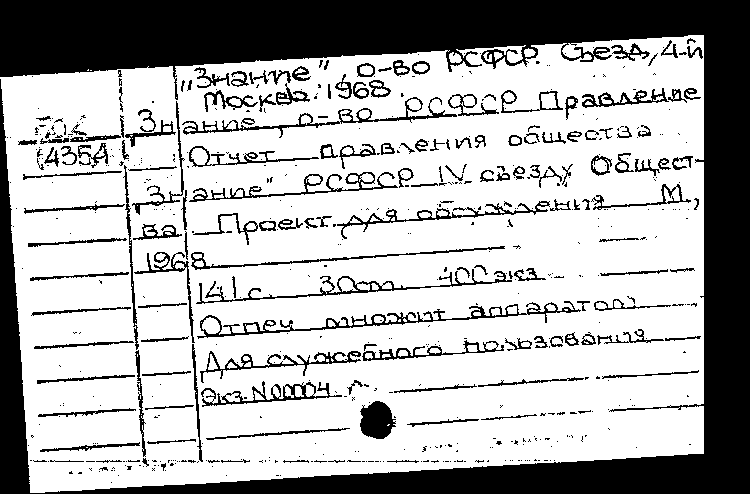 „Знание", о-во РСФСР. Съезд, 4-й
Москва. 1968.
„Знание", о-во РСФСР Правление
4354
Отчет правления общества
„Знание" РСФСР IV съезду Общест-
ва Проект для обсуждения М.,
1968
141 с. 30см. 400 экз.
Отпеч множит аппаратом
Для служебного пользования
Экз. N 00004